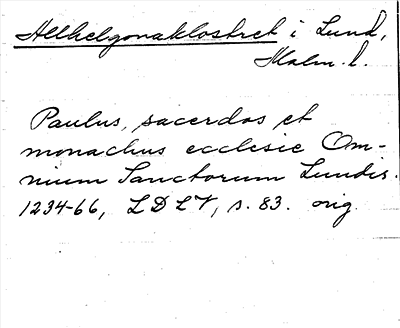 Allhelgonaklostret i Lund,
Malm. l.
Paulus, sacerdos et
monachus ecclesie Om-
nium Sanctorum Lundis.
1234-66, LDLV, s. 83. orig.